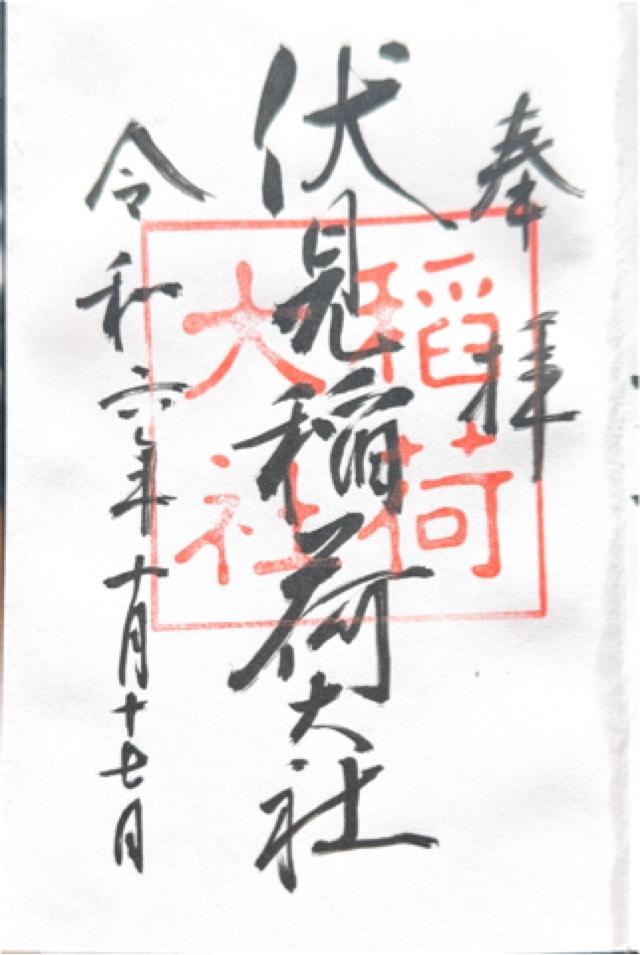 奉拝
伏見稲荷大社
令和六年十月十七日
稲荷
大社